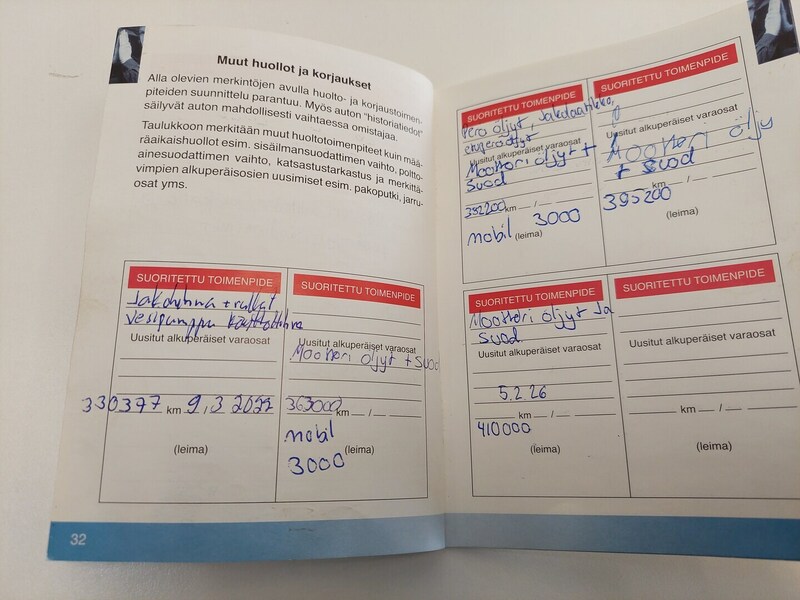 Muut huollot ja korjaukset
Alla olevien merkintöjen avulla huolto- ja korjaustoimen-
piteiden suunnittelu parantuu. Myös auton "historiatiedot"
säilyvät auton mahdollisesti vaihtaessa omistajaa.
Taulukkoon merkitään muut huoltotoimenpiteet kuin mää-
räaikaishuollot esim. sisäilmansuodattimen vaihto, poltto-
ainesuodattimen vaihto, katsastustarkastus ja merkittä-
vimpien alkuperäisosien uusimiset esim. pakoputki, jarru-
osat yms.
SUORITETTU TOIMENPIDE
Jakohihna + rullat
vesipumppu
Uusitut alkuperäiset varaosat
330377 km 9,3 2022
(leima)
SUORITETTU TOIMENPIDE
Uusitut alkuperäiset varaosat
Moottori öljyt + Suod
363000 km / 
mobil
(leima)
3000
32
SUORITETTU TOIMENPIDE
Pera öljyt, Jakolaatikko,
etuperä öljyt
Uusitut alkuperäiset varaosat
Moottori öljyt +
Suod
392200 km / 
mobil 3000
(leima)
SUORITETTU TOIMENPIDE
Uusitut alkuperäiset varaosat
Moottori öljy
+ Suod
km / 
395200
(leima)
SUORITETTU TOIMENPIDE
Moottori öljyt Ja
Suod
Uusitut alkuperäiset varaosat
5.2.26
km / 
410000
(leima)
SUORITETTU TOIMENPIDE
Uusitut alkuperäiset varaosat
km / 
(leima)